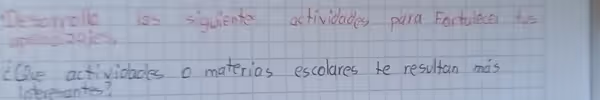 Desarrolle las siguiente actividades para Fortalecer tus
aprendizajes
¿Que actividades o materias escolares te resultan más
interesantes?